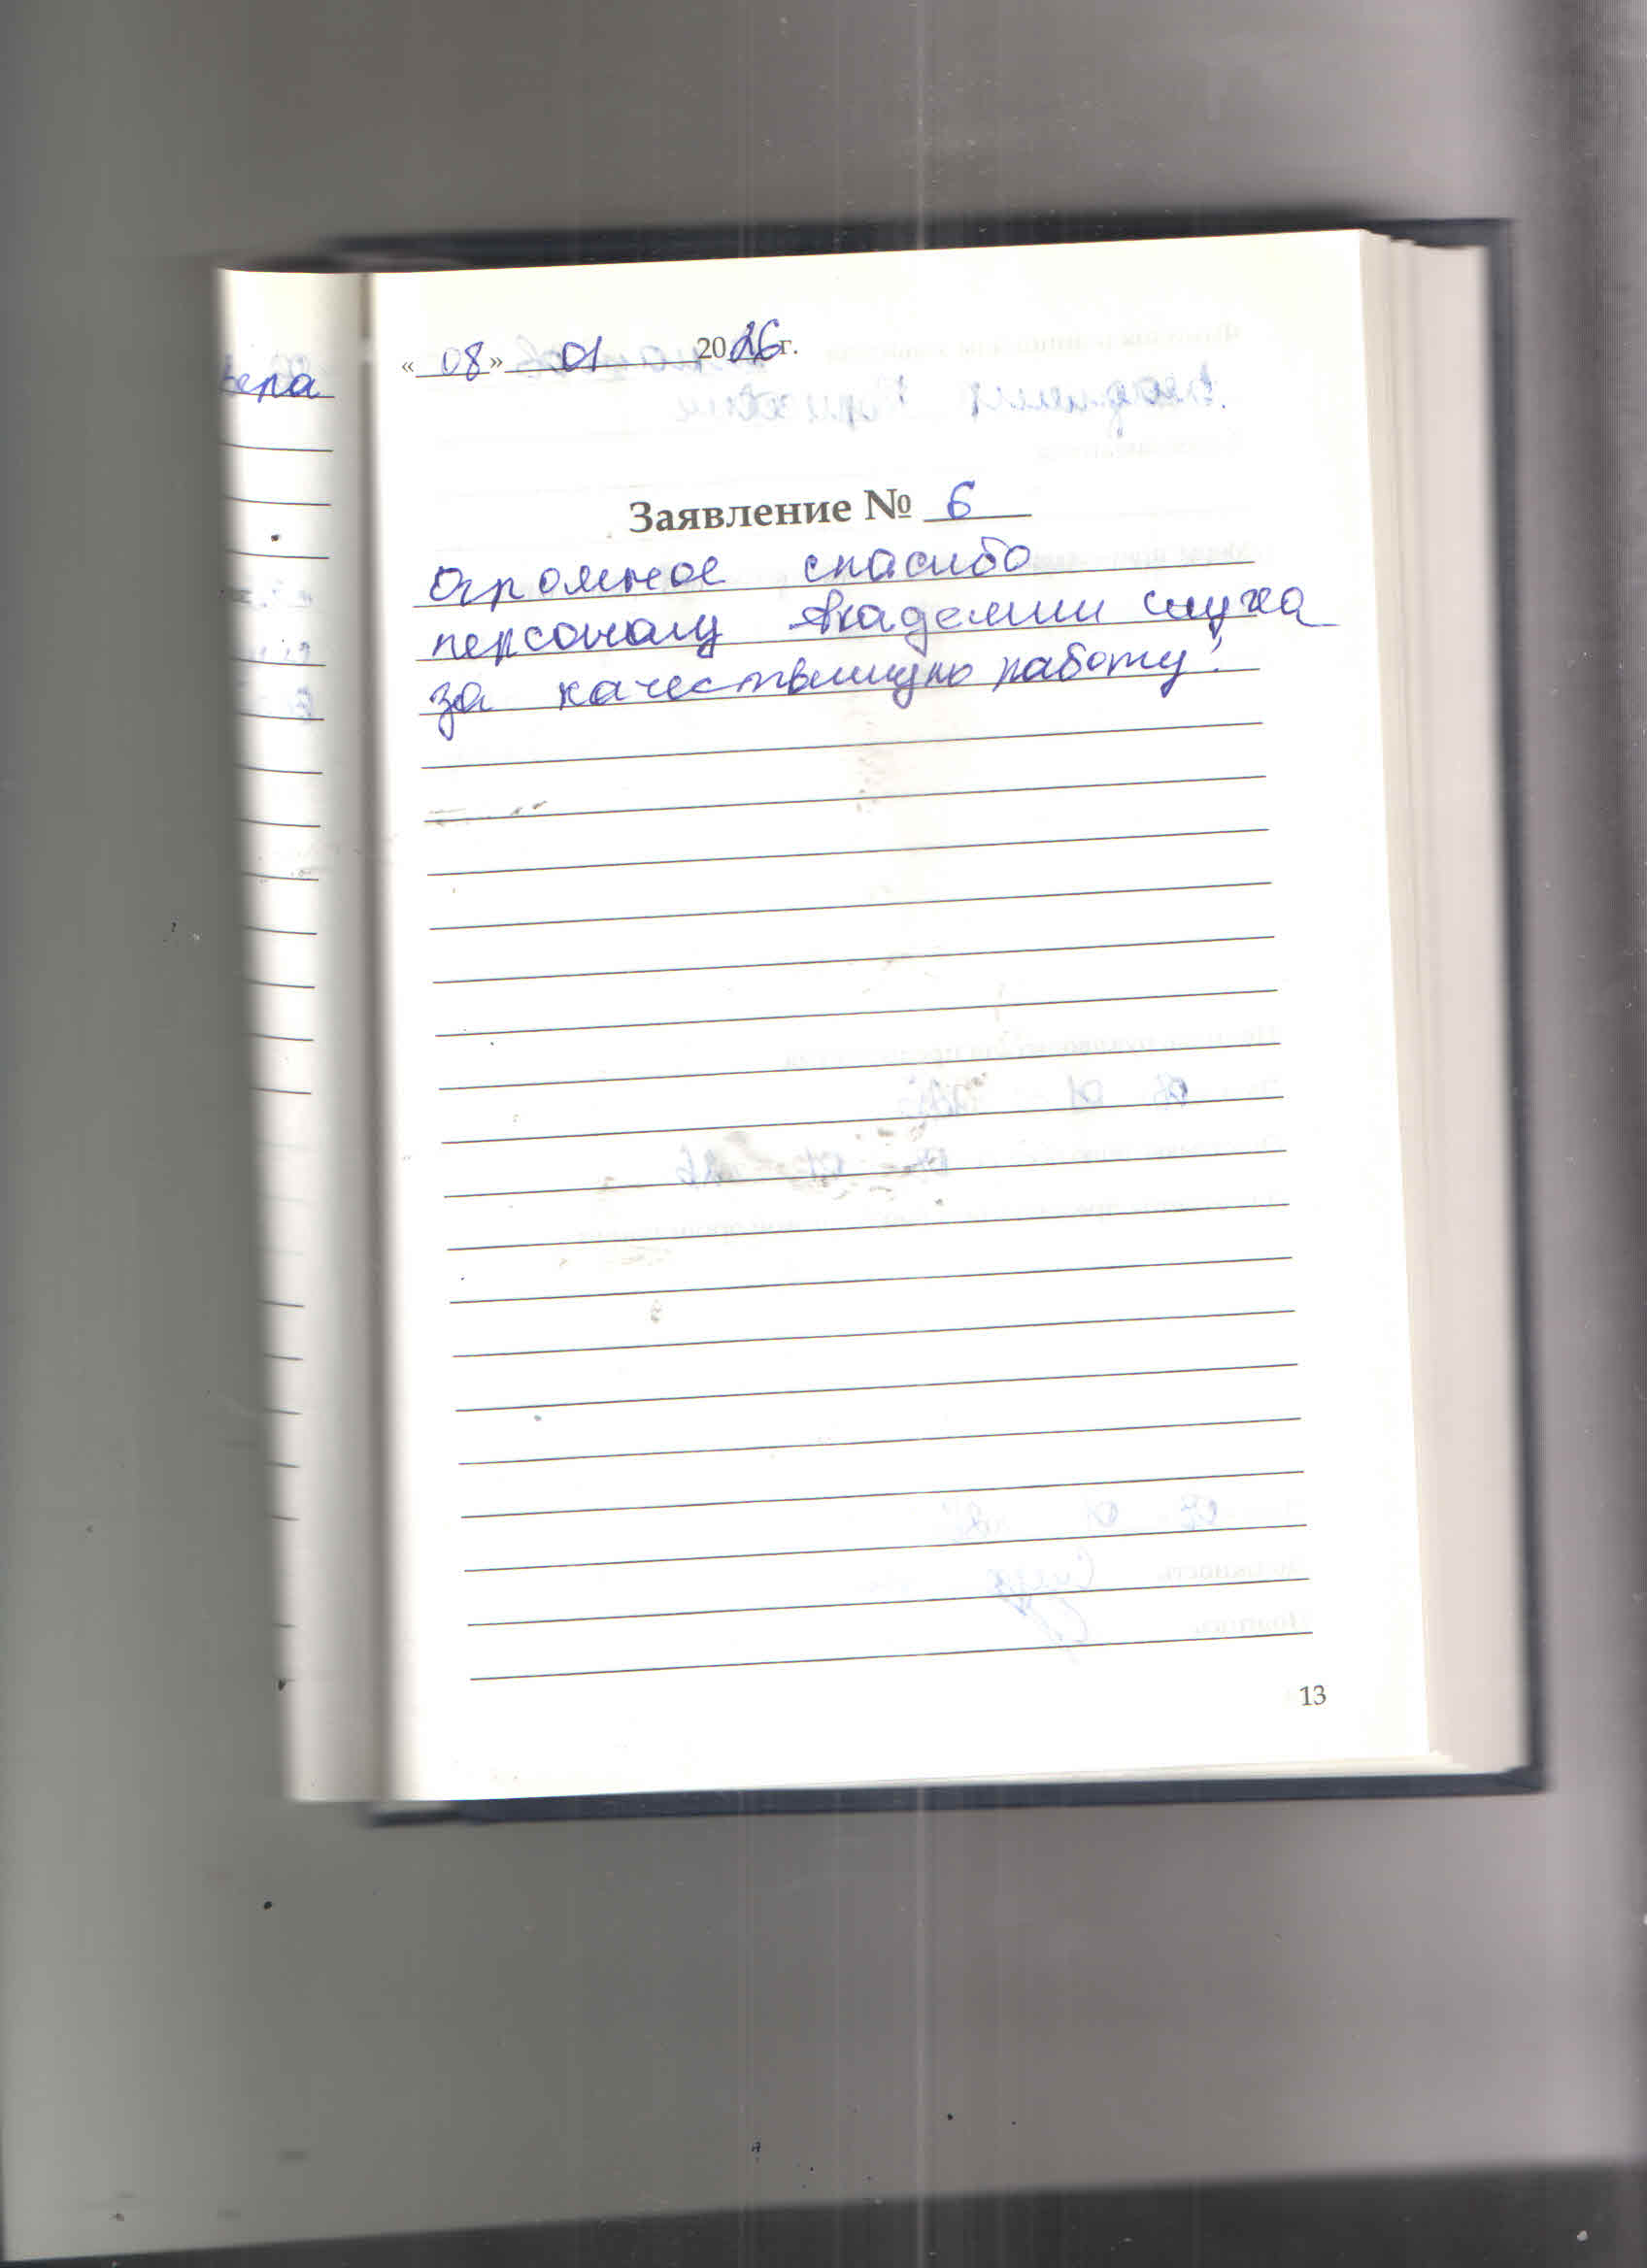 «08» 01 2026 г.
Заявление № 6
Огромное спасибо
персоналу Академии слуха
за качественную работу!
13